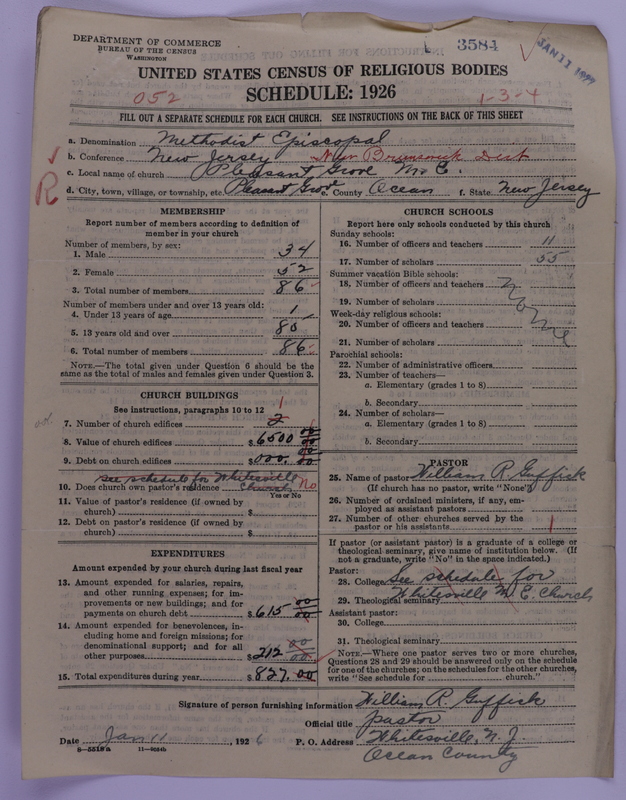 DEPARTMENT OF COMMERCE
BUREAU OF THE CENSUS
WASHINGTON
3584
JAN 11
UNITED STATES CENSUS OF RELIGIOUS BODIES
SCHEDULE: 1926
052
1-3-4
FILL OUT A SEPARATE SCHEDULE FOR EACH CHURCH. SEE INSTRUCTIONS ON THE BACK OF THIS SHEET
a. Denomination Methodist Episcopal
b. Conference New Jersey New Brunswick Dist
c. Local name of church Pleasant Grove M.E.
R
d. City, town, village, or township, etc. Pleasant Grove e. County Ocean f. State New Jersey
MEMBERSHIP
Report number of members according to definition of
member in your church
Number of members, by sex:
1. Male 34
2. Female 52
3. Total number of members 86
Number of members under and over 13 years old:
4. Under 13 years of age 1
5. 13 years old and over 85
6. Total number of members 86
NOTE.—The total given under Question 6 should be the
same as the total of males and females given under Question 3.
CHURCH BUILDINGS
See instructions, paragraphs 10 to 12
1
7. Number of church edifices 2
8. Value of church edifices $ 6500 00
9. Debt on church edifices $ 000. 00
see schedule for Whitesville
10. Does church own pastor's residence Church No
Yes or No
11. Value of pastor's residence (if owned by
church) $
12. Debt on pastor's residence (if owned by
church) $
EXPENDITURES
Amount expended by your church during last fiscal year
13. Amount expended for salaries, repairs,
and other running expenses; for im-
provements or new buildings; and for
payments on church debt $ 615 00
14. Amount expended for benevolences, in-
cluding home and foreign missions; for
denominational support; and for all
other purposes $ 212 00
15. Total expenditures during year $ 827. 00
CHURCH SCHOOLS
Report here only schools conducted by this church
Sunday schools:
16. Number of officers and teachers 11
17. Number of scholars 55
Summer vacation Bible schools:
18. Number of officers and teachers
19. Number of scholars
None
Week-day religious schools:
20. Number of officers and teachers
21. Number of scholars
Parochial schools:
22. Number of administrative officers
23. Number of teachers—
a. Elementary (grades 1 to 8)
b. Secondary
24. Number of scholars—
a. Elementary (grades 1 to 8)
b. Secondary
PASTOR
25. Name of pastor William R Guffick
(If church has no pastor, write "None")
26. Number of ordained ministers, if any, em-
ployed as assistant pastors
27. Number of other churches served by the
pastor or his assistants 1
If pastor (or assistant pastor) is a graduate of a college or
theological seminary, give name of institution below. (If
not a graduate, write "No" in the space indicated.)
Pastor:
28. College See schedule for
29. Theological seminary Whitesville M.E. Church
Assistant pastor:
30. College
31. Theological seminary
NOTE.—Where one pastor serves two or more churches,
Questions 28 and 29 should be answered only on the schedule
for one of the churches; on the schedules for the other churches,
write "See schedule for church."
Signature of person furnishing information William R. Guffick
Official title pastor
Date Jan 11, 1926 P. O. Address Whitesville, N. J.
8—5518a 11—9684b Ocean County